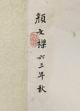 顏文樑 六三年秋